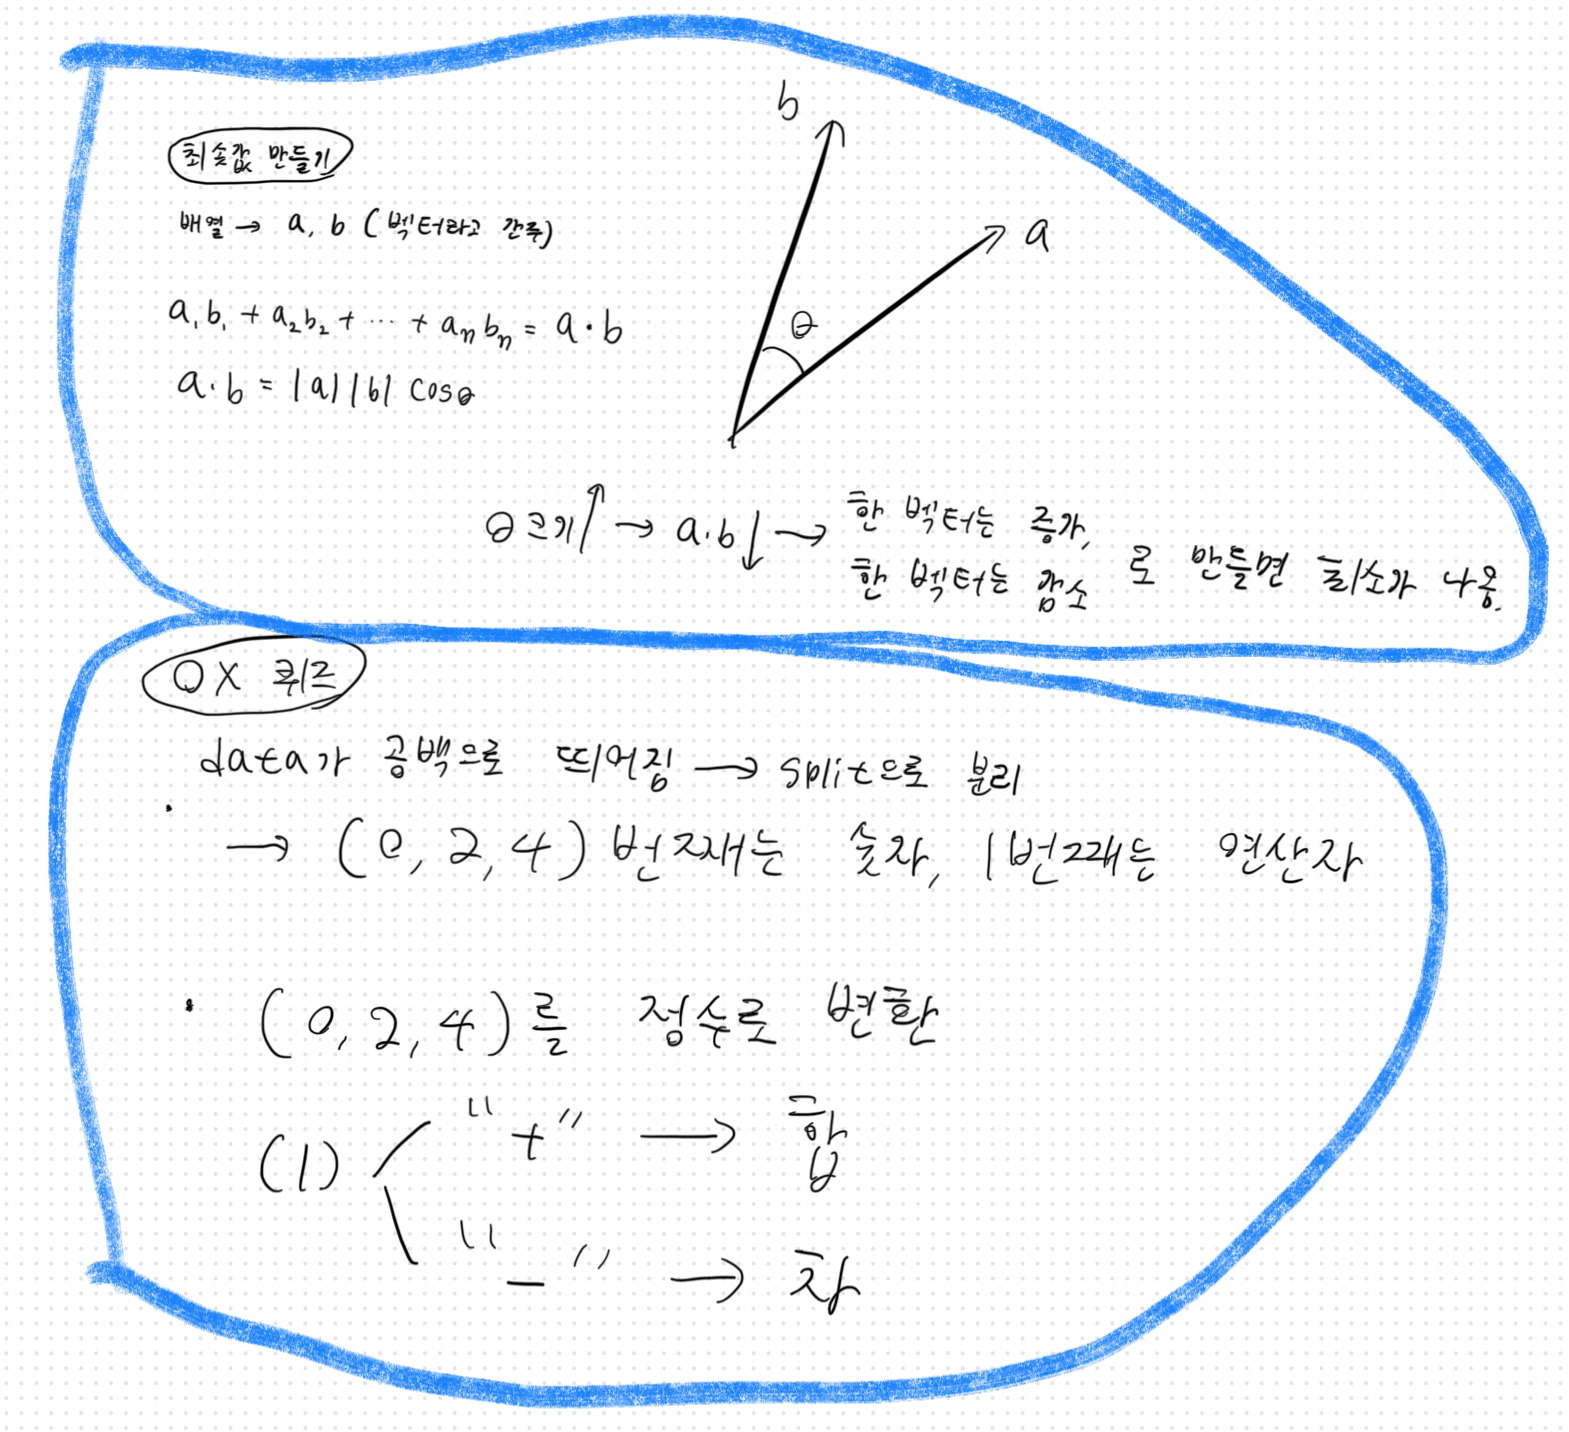 최솟값 만들기
배열 → a, b (벡터라고 간주)
a₁b₁ + a₂b₂ + ⋯ + aₙbₙ = a · b
a · b = |a| |b| cosθ
b
a
θ
θ 크기↑ → a·b↓ → 한 벡터는 증가,
한 벡터는 감소 로 만들면 최소가 나옴.
OX 퀴즈
data가 공백으로 띄어짐 → split으로 분리
· → (0, 2, 4) 번째는 숫자, 1번째는 연산자
· (0, 2, 4)를 정수로 변환
(1) "+" → 합
"-" → 차